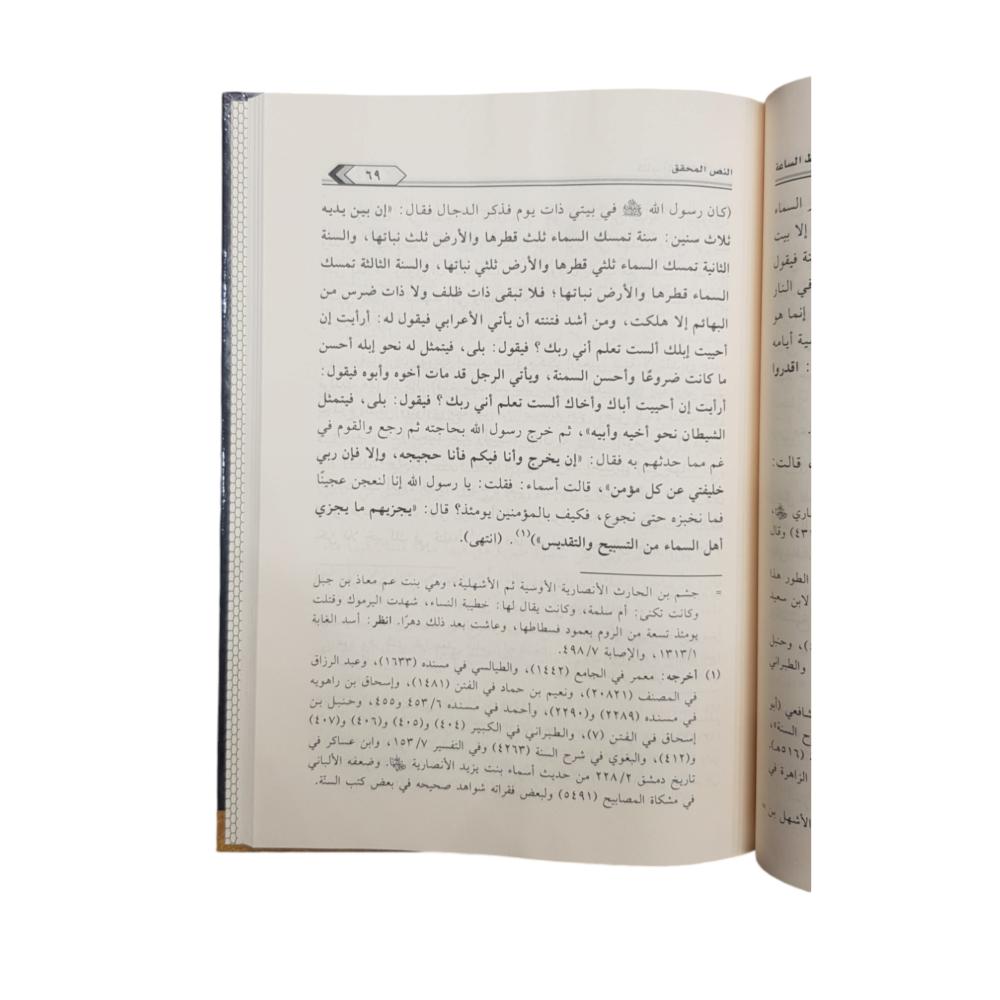 النص المحقق
٦٩
(كان رسول الله ﷺ في بيتي ذات يوم فذكر الدجال فقال: «إن بين يديه
ثلاث سنين: سنة تمسك السماء ثلث قطرها والأرض ثلث نباتها، والسنة
الثانية تمسك السماء ثلثي قطرها والأرض ثلثي نباتها، والسنة الثالثة تمسك
السماء قطرها والأرض نباتها؛ فلا تبقى ذات ظلف ولا ذات ضرس من
البهائم إلا هلكت، ومن أشد فتنته أن يأتي الأعرابي فيقول له: أرأيت إن
أحييت إبلك ألست تعلم أني ربك؟ فيقول: بلى، فيتمثل له نحو إبله أحسن
ما كانت ضروعًا وأحسن السمنة، ويأتي الرجل قد مات أخوه وأبوه فيقول:
أرأيت إن أحييت أباك وأخاك ألست تعلم أني ربك؟ فيقول: بلى، فيتمثل
الشيطان نحو أخيه وأبيه»، ثم خرج رسول الله بحاجته ثم رجع والقوم في
غم مما حدثهم به فقال: «إن يخرج وأنا فيكم فأنا حجيجه، وإلا فإن ربي
خليفتي عن كل مؤمن»، قالت أسماء: فقلت: يا رسول الله إنا لنعجن عجينًا
فما نخبزه حتى نجوع، فكيف بالمؤمنين يومئذ؟ قال: «يجزيهم ما يجزي
أهل السماء من التسبيح والتقديس»)(١). (انتهى).
= جشم بن الحارث الأنصارية الأوسية ثم الأشهلية، وهي بنت عم معاذ بن جبل
وكانت تكنى: أم سلمة، وكانت يقال لها: خطيبة النساء، شهدت اليرموك وقتلت
يومئذ تسعة من الروم بعمود فسطاطها، وعاشت بعد ذلك دهرًا. انظر: أسد الغابة
١/ ١٣١٣، والإصابة ٧/ ٤٩٨.
(١) أخرجه: معمر في الجامع (١٤٤٢)، والطيالسي في مسنده (١٦٣٣)، وعبد الرزاق
في المصنف (٢٠٨٢١)، ونعيم بن حماد في الفتن (١٤٨١)، وإسحاق بن راهويه
في مسنده (٢٢٨٩) و(٢٢٩٠)، وأحمد في مسنده ٦/ ٤٥٣ و٤٥٥، وحنبل بن
إسحاق في الفتن (٧)، والطبراني في الكبير (٤٠٤) و(٤٠٥) و(٤٠٦) و(٤٠٧)
و(٤١٢)، والبغوي في شرح السنة (٤٢٦٣) وفي التفسير ٧/ ١٥٣، وابن عساكر في
تاريخ دمشق ٢/ ٢٢٨ من حديث أسماء بنت يزيد الأنصارية. وضعفه الألباني
في مشكاة المصابيح (٥٤٩١) ولبعض فقراته شواهد صحيحه في بعض كتب السنّة.